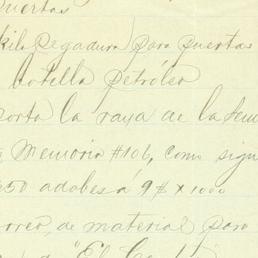 Puertas
kilo pegadura para puertas
botella petróleo
porta la raya de la
Memoria #106, como sigu
250 adobes á 9$ x 1000
de material para
"El